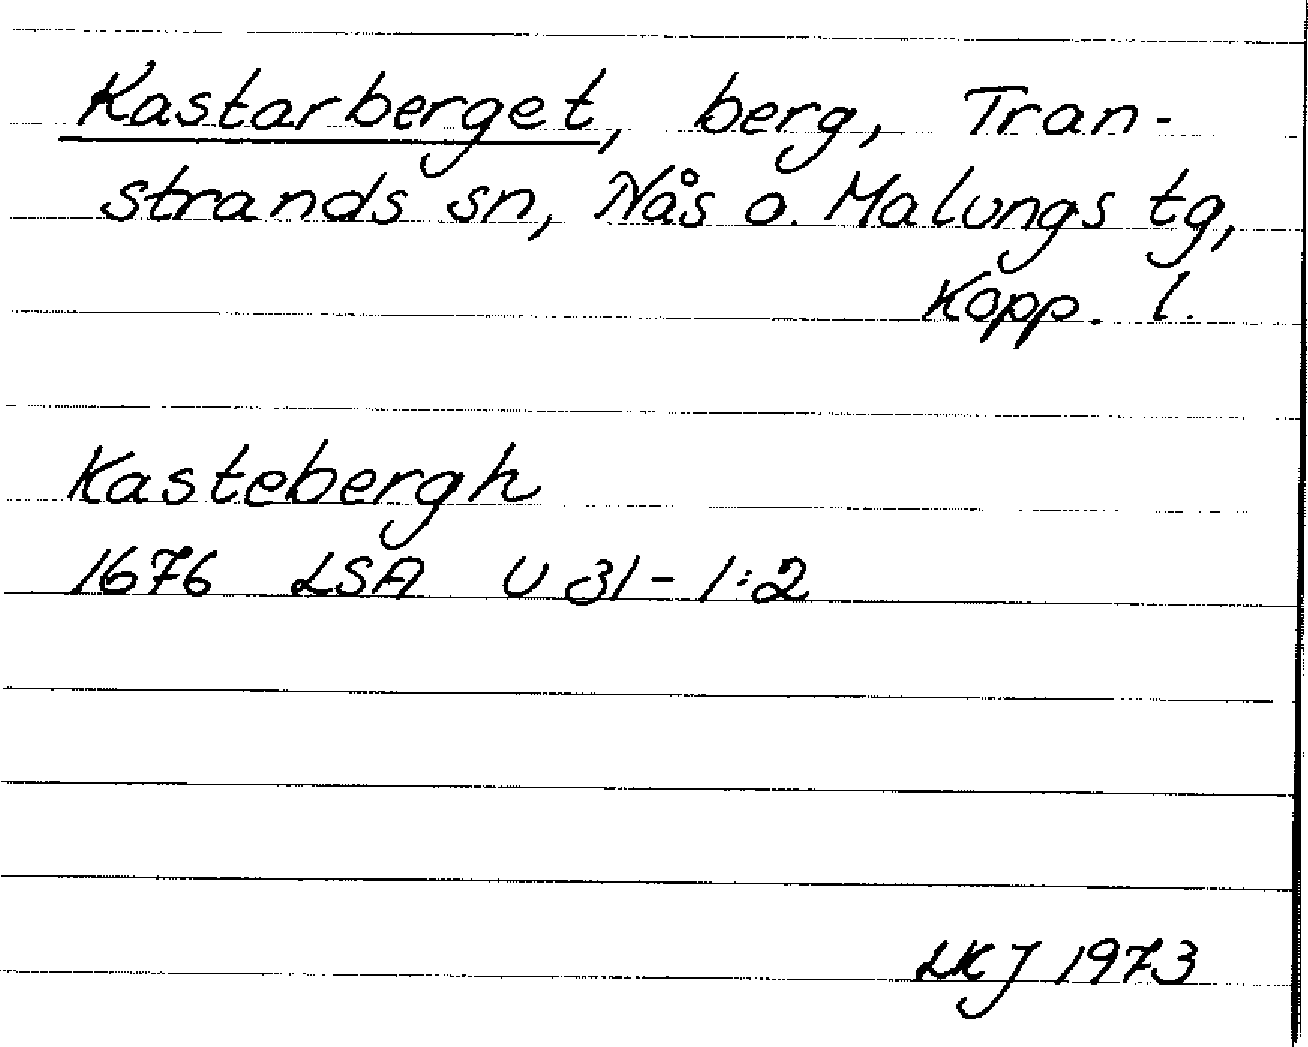 Kastarberget, berg, Tran-
strands sn, Nås o. Malungs tg,
Kopp. l.
Kastebergh
1676 LSA U 31-1:2
LKJ 1973